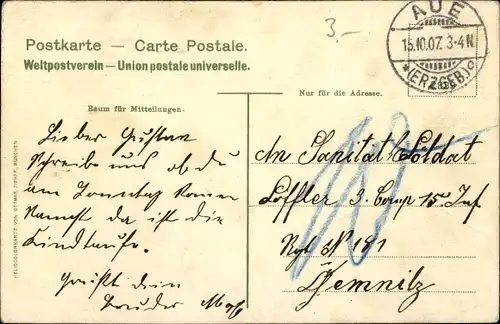 3.-
AUE
15.10.07. 3-4N
*(ERZGEB.)c
Postkarte — Carte Postale.
Weltpostverein — Union postale universelle.
Nur für die Adresse.
Raum für Mitteilungen.
Lieber Gustav
schreibe uns ob du
am Sonntag komen
kannst da ist die
Kindtaufe.
Grüßt dein
Bruder
An Sanität Soldat
Löffler 3. Comp 15. Inf
Rgt N 181
Chemnitz
HELIOCOLORKARTE VON OTTMAR ZIEHER, MÜNCHEN